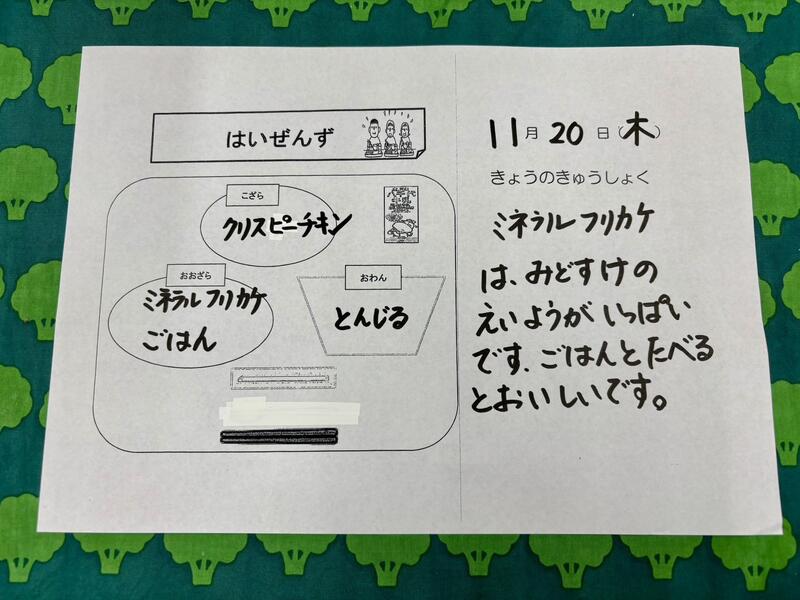 はいぜんず
こざら
クリスピーチキン
おおざら
ミネラルフリカケ
ごはん
おわん
とんじる
11月20日(木)
きょうのきゅうしょく
ミネラルフリカケ
は、みどすけの
えいようがいっぱい
です、ごはんとたべる
とおいしいです。